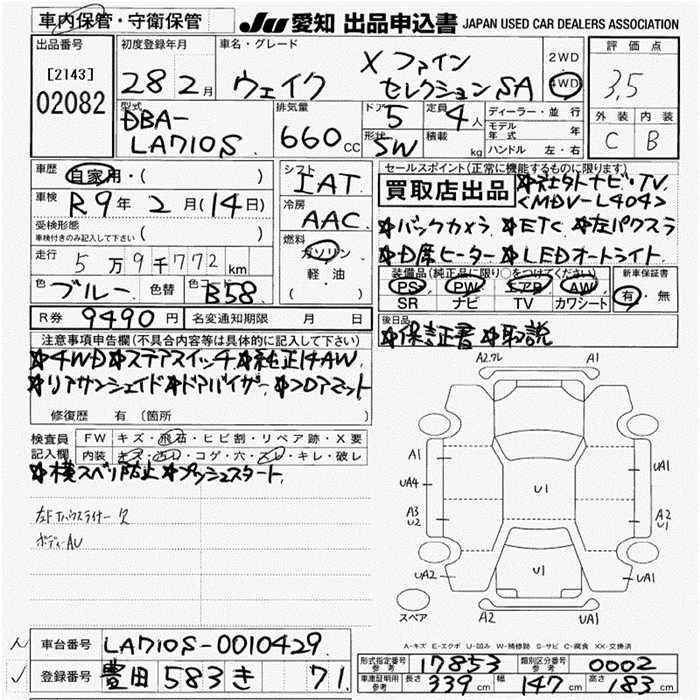 車内保管・守衛保管 JU 愛知 出品申込書 JAPAN USED CAR DEALERS ASSOCIATION
出品番号 初度登録年月 車名・グレード 評価点
[2143] 28 2月 ウェイク X ファイン 2WD 3.5
02082 セレクションSA 4WD
型式 排気量 ドア 5 定員 4人 ディーラー・並行 外装 内装
DBA- 660cc 形状 積載 モデル年式 年 C B
LA710S SW kg ハンドル 左・右
車歴 自家用・( ) シフト セールスポイント(正常に機能するものに限ります)
車検 R9年 2月(14日) IAT 買取店出品 ☆社外ナビ・TV
受検形態 ( ) 冷房 <MDV-L404>
車検付きのみ記入して下さい AAC ☆バックカメラ ☆ETC ☆左パワスラ
走行 5万9千772km 燃料 ガソリン ☆D席ヒーター ☆LEDオートライト
色 ブルー 色替 色コード B58 軽・油 装備品(純正品に限り○をつけてください) 新車保証書
( ) PS PW エアB AW 有・無
R券 9490円 名変通知期限 月 日 SR ナビ TV カワシート
注意事項申告欄(不具合内容等は具体的に記入して下さい) 後日品
☆4WD☆ステアスイッチ☆純正14AW ☆保証書 ☆取説
☆リアサンシェイド☆ドアバイザー☆フロアマット
修復歴 有 (箇所 )
検査員 FW キズ・飛石・ヒビ割・リペア跡・X要
記入欄 内装 キズ・汚レ・コゲ・穴・スレ・キレ・破レ
☆横スベリ防止☆プッシュスタート
ボディーAU
A2.7L A1
A1 UA1
UA4 U1
A3 A2
U2 U1
UA2 U1 UA1
A2 UA1
スペア
A-キズ E-エクボ U-凹み W-補修跡 S-サビ C-腐食 XX-交換済
車台番号 LA710S-0010429
形式指定番号 参考 17853 類別区分番号 参考 0002
登録番号 豊田 583 き 71
車庫証明用 参考 長さ 339cm 幅 147cm 高さ 183cm